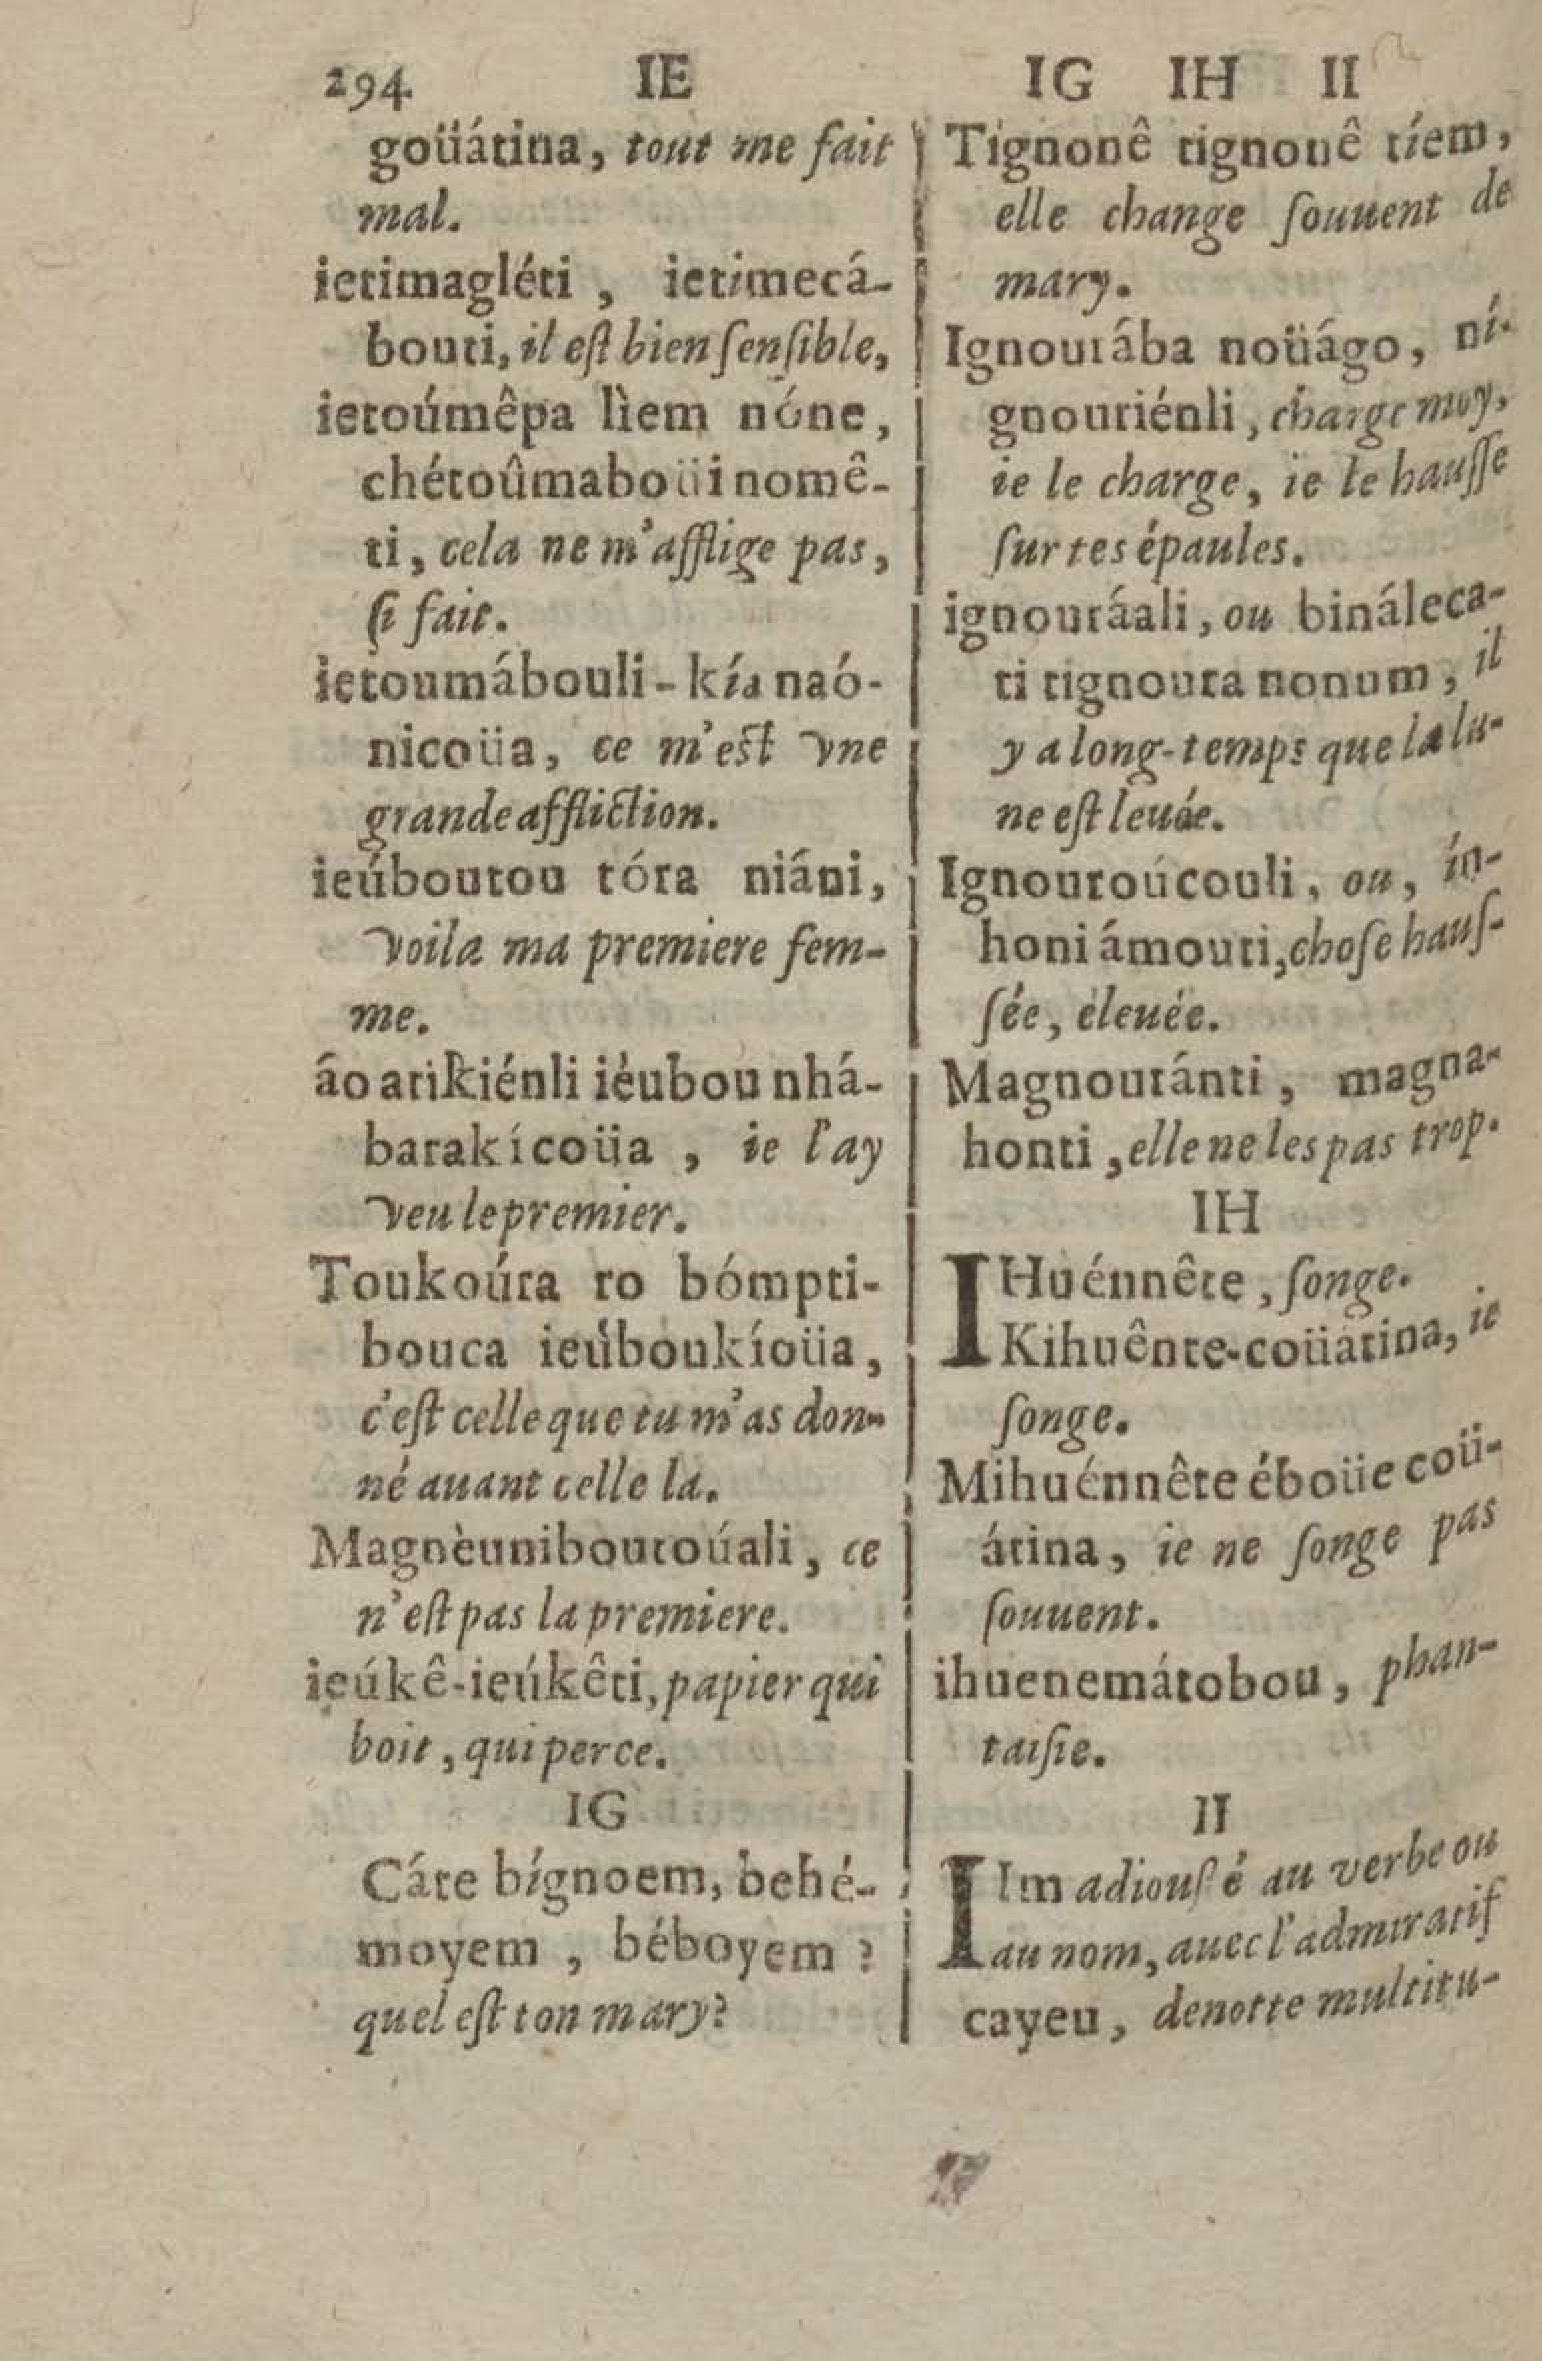 294 IE
goüátina, tout me fait
mal.
ietimagléti, ietimecá-
bouti, il eſt bien ſenſible,
ietoúmêpa lìem nóne,
chétoûmaboüinomê-
ti, cela ne m'afflige pas,
ſi fait.
ietoumábouli-kía naó-
nicoüa, ce m'est vne
grande affliction.
ieúboutou tóra niáni,
voila ma premiere fem-
me.
áo atikiénli ièubou nhá-
barakícoüa, ie l'ay
veu le premier.
Toukoúra ro bómpti-
bouca ieúboukíoüa,
c'eſt celle que tu m'as don-
né auant celle la.
Magnèuniboutoúali, ce
n'eſt pas la premiere.
ieúkê-ieúkêti, papier qui
boit, qui perce.
IG
Cáte bígnoem, behé-
moyem, béboyem?
quel eſt ton mary?
IG IH II
Tignonê tignonê tíem,
elle change ſouuent de
mary.
Ignoutába noüágo, ní-
gnouriénli, charge moy,
ie le charge, ie le hauſſe
ſur tes épaules.
ignoutáali, ou bináleca-
ti tignouta nonum, il
y a long-temps que la lu-
ne eſt leuée.
Ignoutoúcouli, ou, ín-
honi ámouti, choſe hauſ-
ſée, éleuée.
Magnoutánti, magna-
honti, elle ne les pas trop.
IH
IHuénnête, ſonge.
Kihuênte-coüátina, ie
ſonge.
Mihuénnête éboüe coü-
átina, ie ne ſonge pas
ſouuent.
ihuenemátobou, phan-
taiſie.
II
IIm adiouſé au verbe ou
au nom, auec l'admiratif
cayeu, denotte multitu-